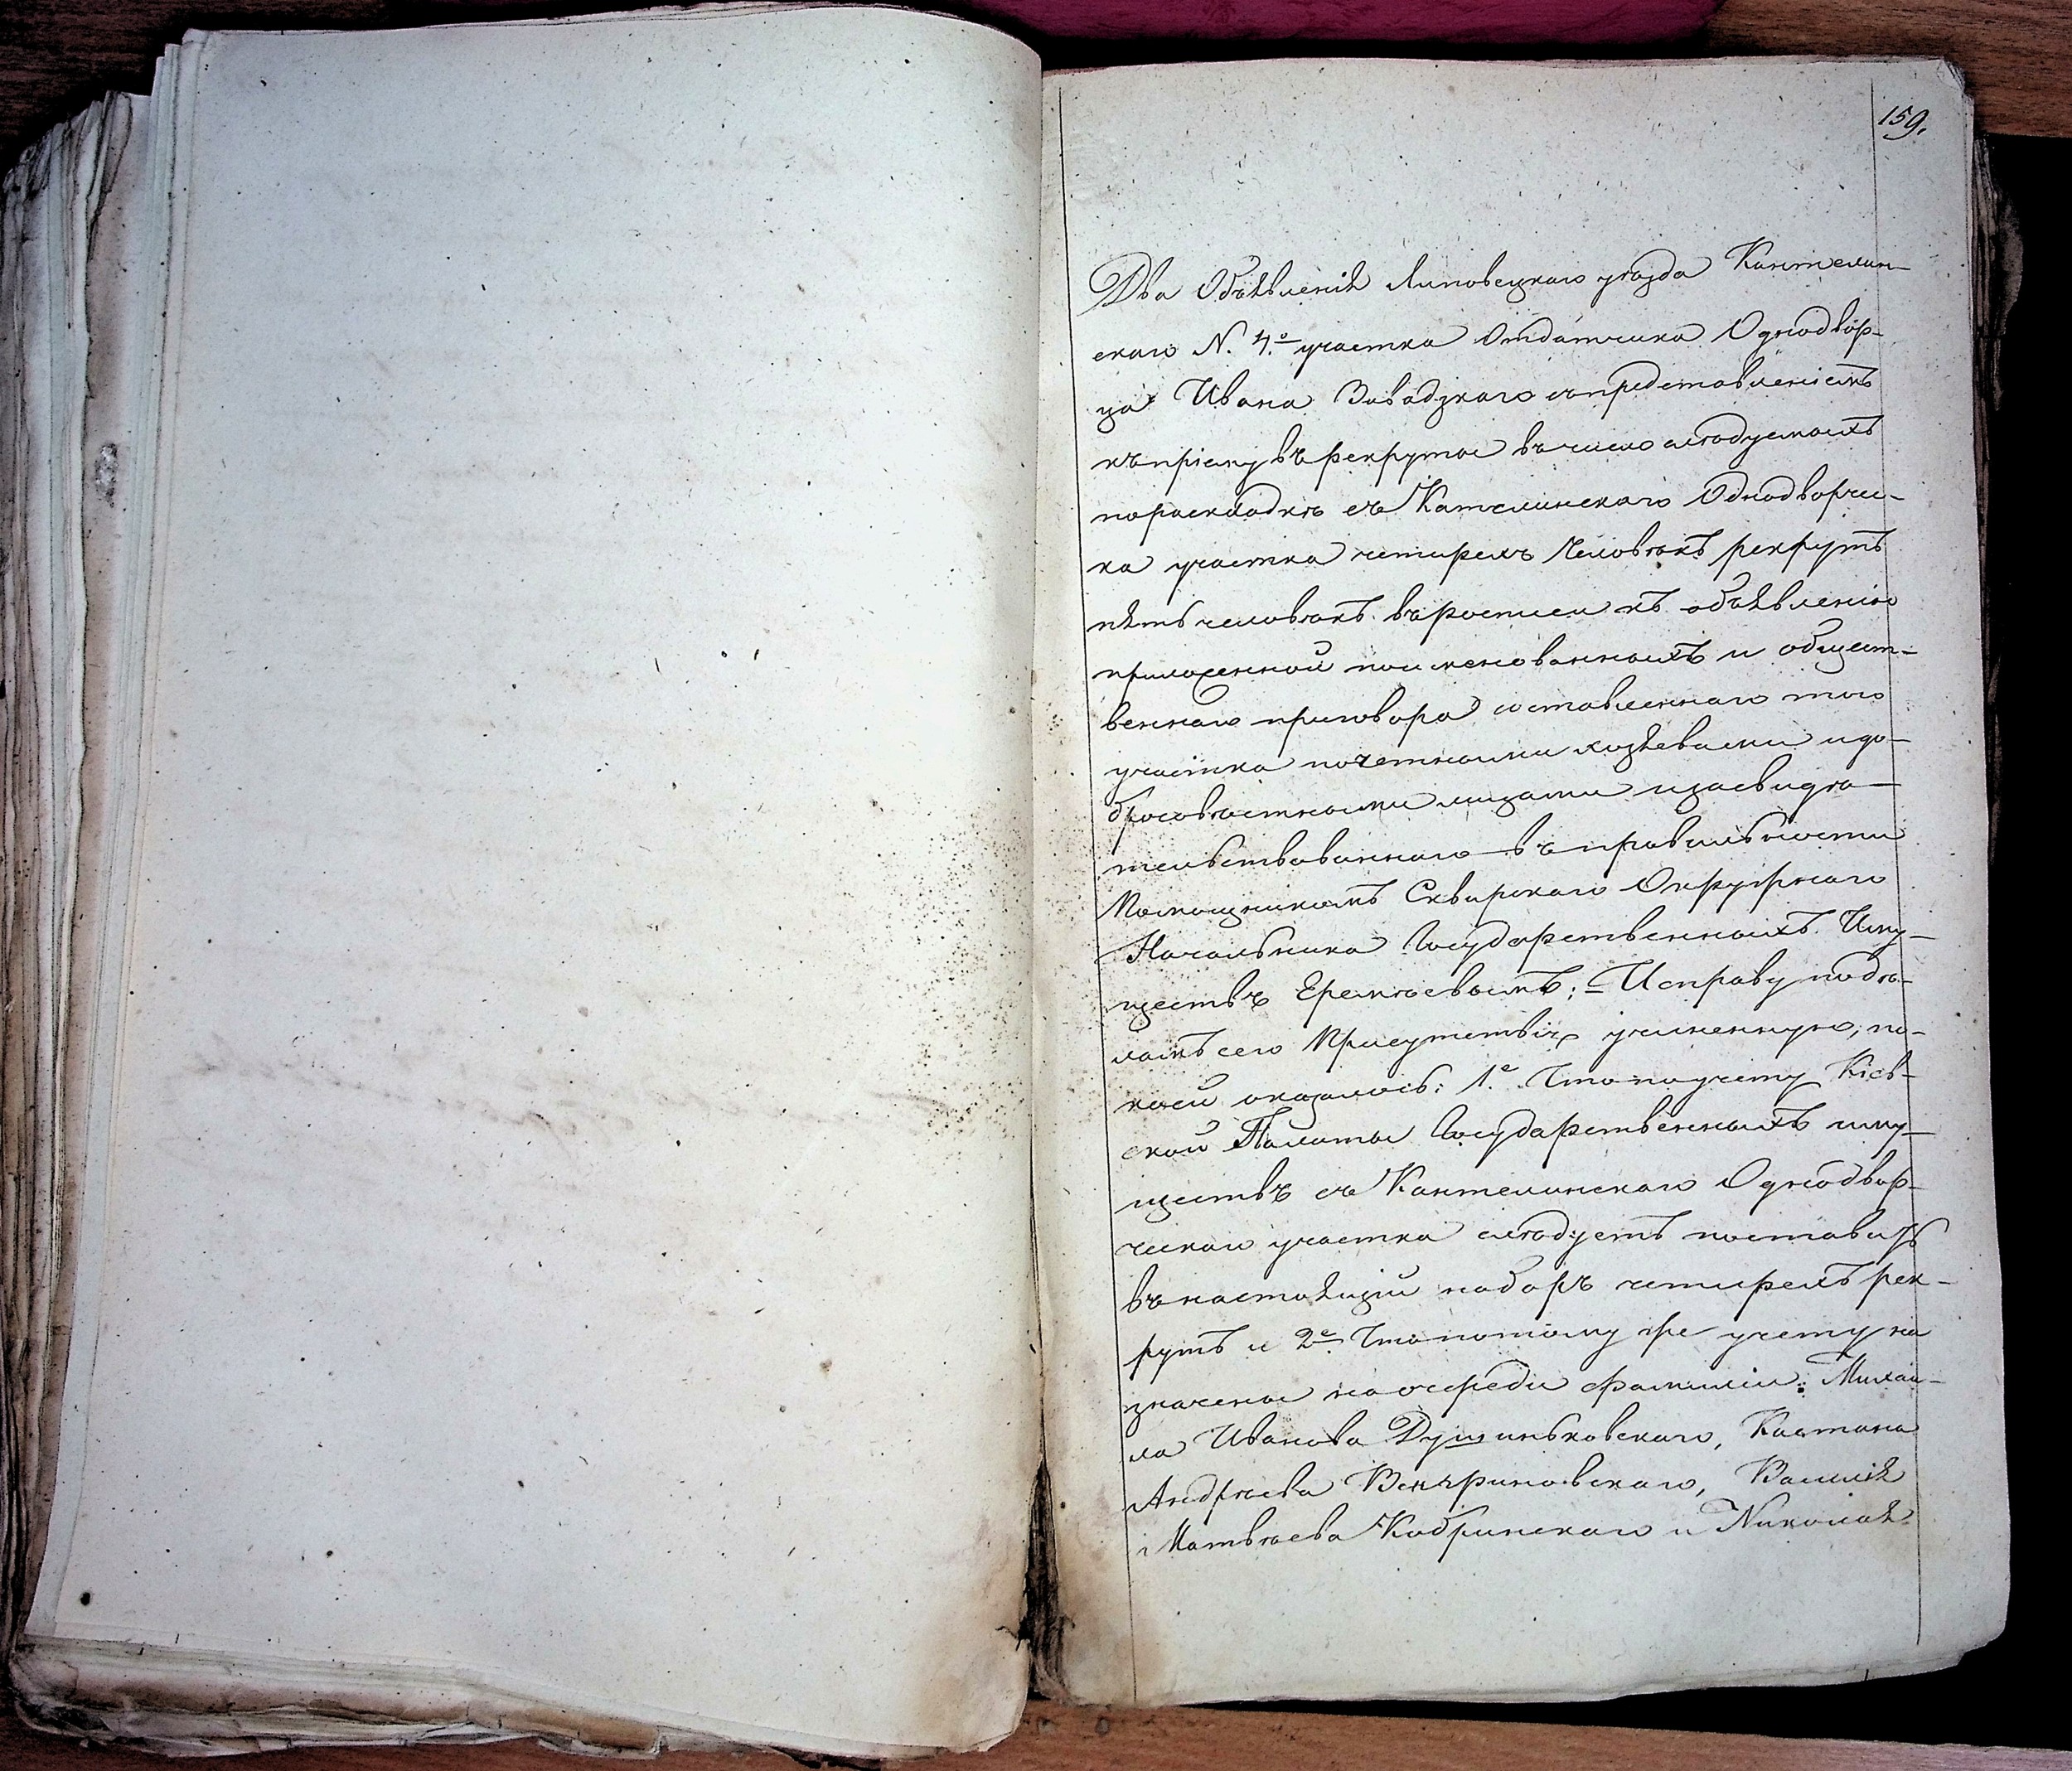 159.
Два Объявленія Липовецкаго уѣзда Кантелин-
скаго N. 4.о участка Отдатчика Однодвор-
ца Ивана Завадзкаго съ представленіемъ
къ пріему въ рекруты въ число слѣдуемыхъ
пораскладкѣ съ Кателинскаго Однодворче-
ка участка четирехъ Человѣкъ рекрутъ
пять человѣкъ въ росписи къ объявленію
приложенной поименованныхъ и общест-
веннаго приговора составленнаго того
участка почетными хозяевами и до-
бросовѣстными лицами и засвидѣ-
тельствованнаго въ правильности
Помощникомъ Сквирскаго Окружнаго
Начальника Государственныхъ Иму-
ществъ Еремѣевымъ; – И справу по дѣ-
ламъ сего Присутствія учиненную, по-
коей оказалось: 1.е Что по учету Кіев-
ской Палаты Государственныхъ иму-
ществъ съ Кантелинскаго Однодвор-
ческаго участка слѣдуетъ поставить
въ настоящій наборъ четирехъ рек-
рутъ и 2.е Что потому же учету на
значены на очереди фамиліи: Михаи-
ла Иванова Душиньковскаго, Каэтана
Андрѣева Венгриновскаго, Василія
Матвѣева Кобринскаго и Николая